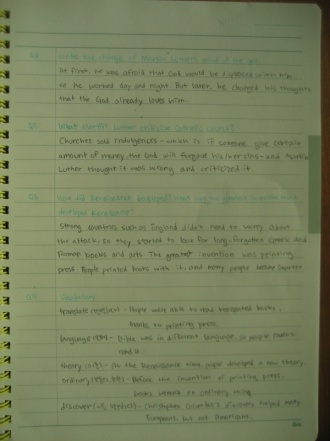 Write the change of Martin Luther's mind of the god.
At first, he was afraid that God would be displeased with him
so he worked day and night. But later, he changed his thoughts
that the God already loves him.
What Martin Luther criticize Catholic church?
Churches sold indulgences - which is if someone give certain
amount of money, the God will forgive his/her sins - and Martin
Luther thought it was wrong and criticized it.
How did Renaissance developed? What was the greatest invention
Strong countries such as England didn't need to worry about
the attack, so they started to look for long-forgotten Greek and
Roman books and arts. The greatest invention was printing
press. People printed books with it, and many people became
Vocabulary
translate - People were able to read translated books,
thanks to printing press.
language - Bible was in different language, so people couldn't
read it.
theory - At the Renaissance time, people developed a new theory.
ordinary - Before the invention of printing press,
books weren't an ordinary thing
discover - Christopher Columbus's discovery helped many
Europeans, but not Americans.